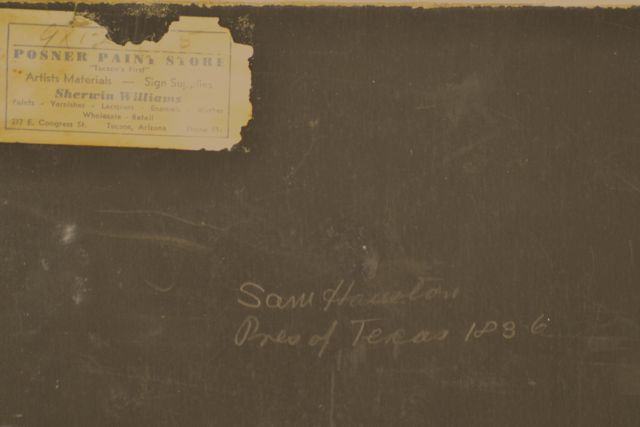 9x12
POSNER PAINT STORE
"Tucson's First"
Artists Materials — Sign Supplies
Sherwin Williams
Paints - Varnishes - Lacquers - Enamels -
Wholesale - Retail
217 E. Congress St. Tucson, Arizona Phone
Sam Houston
Pres of Texas 1836